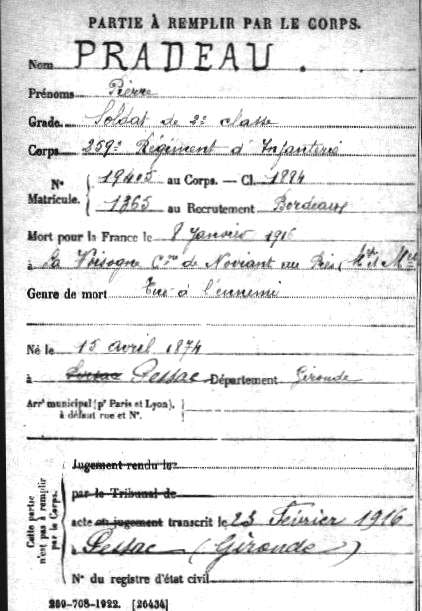 PARTIE À REMPLIR PAR LE CORPS.
Nom PRADEAU.
Prénoms Pierre
Grade Soldat de 2e classe
Corps 259e Régiment d'Infanterie
N° Matricule. 19405 au Corps. — Cl. 1884
1365 au Recrutement Bordeaux
Mort pour la France le 8 Janvier 1916
à La Voisogne Cne de Noviant aux Prés (Mthe et Mlle
Genre de mort Tué à l'ennemi
Né le 15 avril 1874
à Pessac Département Gironde
Arrt municipal (pr Paris et Lyon),
à défaut rue et N°.
Cette partie n'est pas à remplir par le Corps.
Jugement rendu le
par le Tribunal de
acte ou jugement transcrit le 23 Février 1916
à Pessac (Gironde)
N° du registre d'état civil
269-708-1922. [26434]